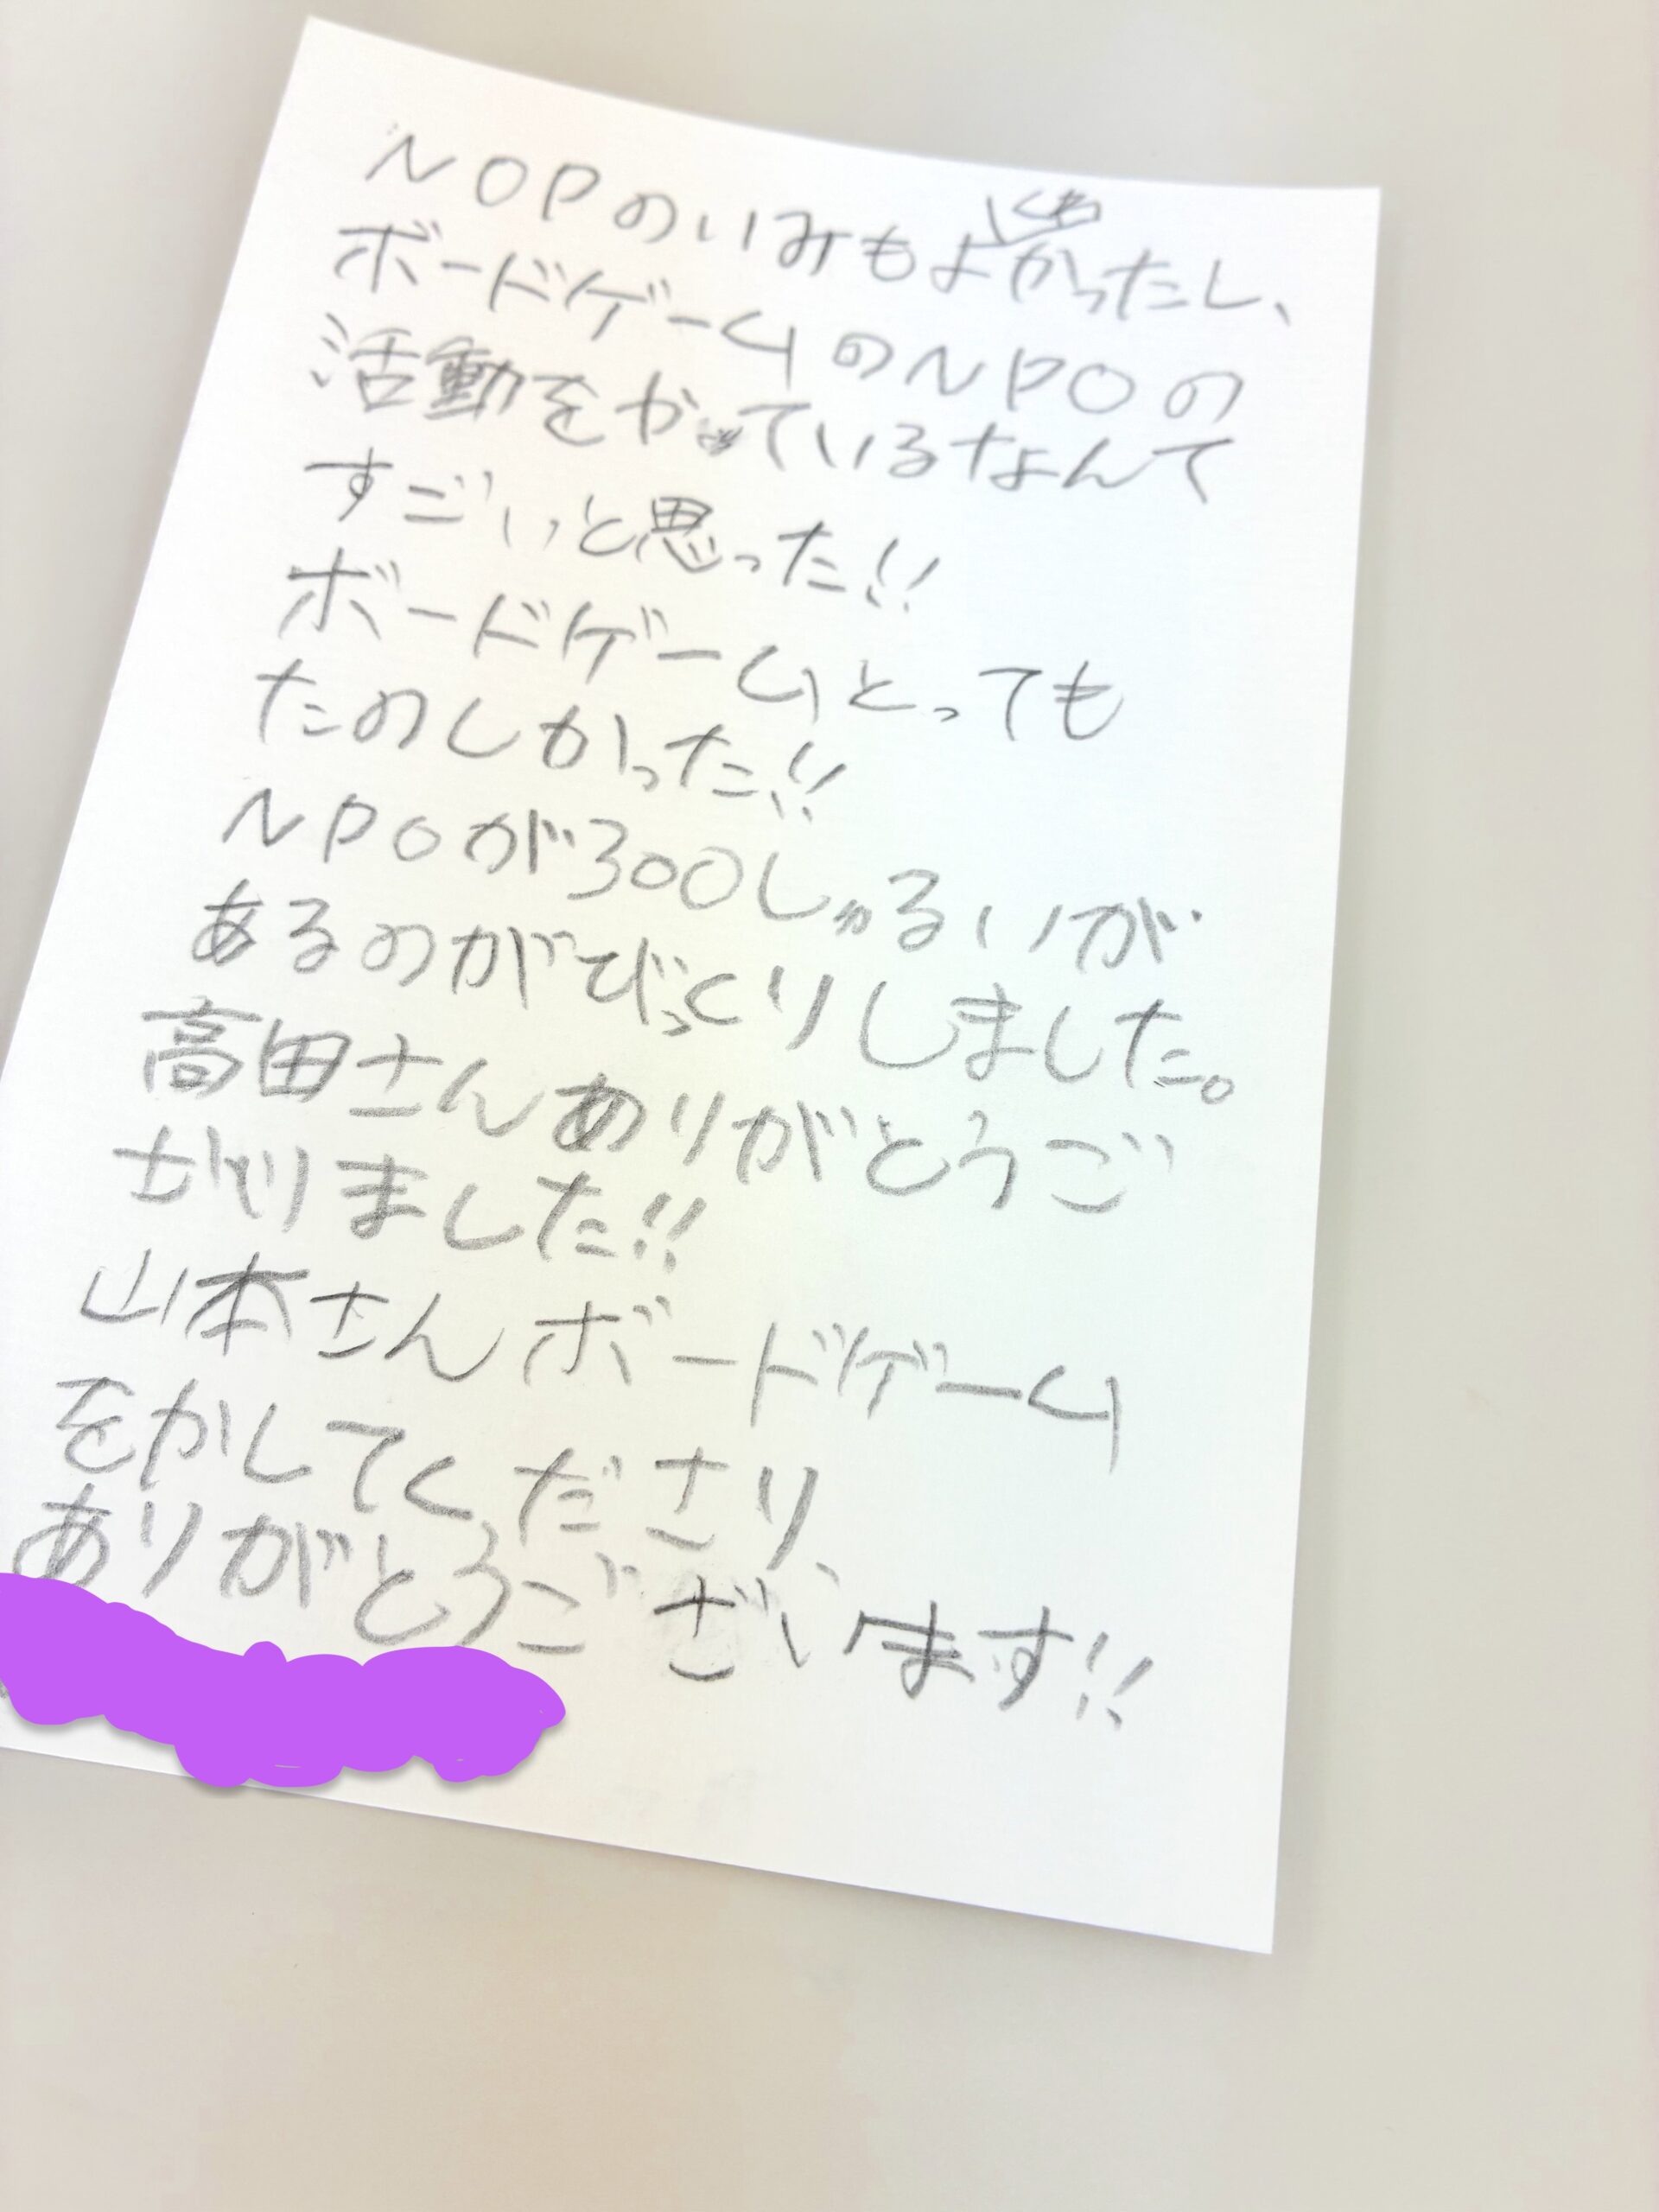 NOPのいみもよくわかったし、
ボードゲームのNPOの
活動をやっているなんて
すごいと思った!!
ボードゲームとっても
たのしかった!!
NPOが300しゅるいが
あるのがびっくりしました。
高田さんありがとうご
ざいりました!!
山本さんボードゲーム
をかしてくださり、
ありがとうございます!!